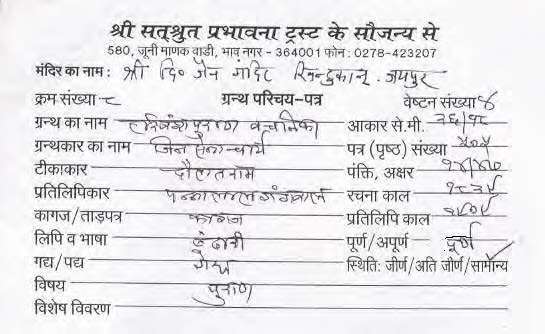 श्री सत्‌श्रुत प्रभावना ट्रस्ट के सौजन्य से
580, जूनी माणक वाडी, भाव नगर - 364001 फोन : 0278-423207
मंदिर का नाम : श्री दि० जैन मंदिर जयपुर
क्रम संख्या ८ ग्रन्थ परिचय-पत्र वेष्टन संख्या ४
ग्रन्थ का नाम हरिवंश पुराण वचनिका आकार से.मी.
ग्रन्थकार का नाम जिनसेनाचार्य पत्र (पृष्ठ) संख्या
टीकाकार दौलतराम पंक्ति, अक्षर
प्रतिलिपिकार पन्नालाल गंगवाल रचना काल
कागज/ताड़पत्र कागज प्रतिलिपि काल
लिपि व भाषा ढूंढारी पूर्ण/अपूर्ण पूर्ण
गद्य/पद्य गद्य स्थिति: जीर्ण/अति जीर्ण/सामान्य
विषय पुराण
विशेष विवरण